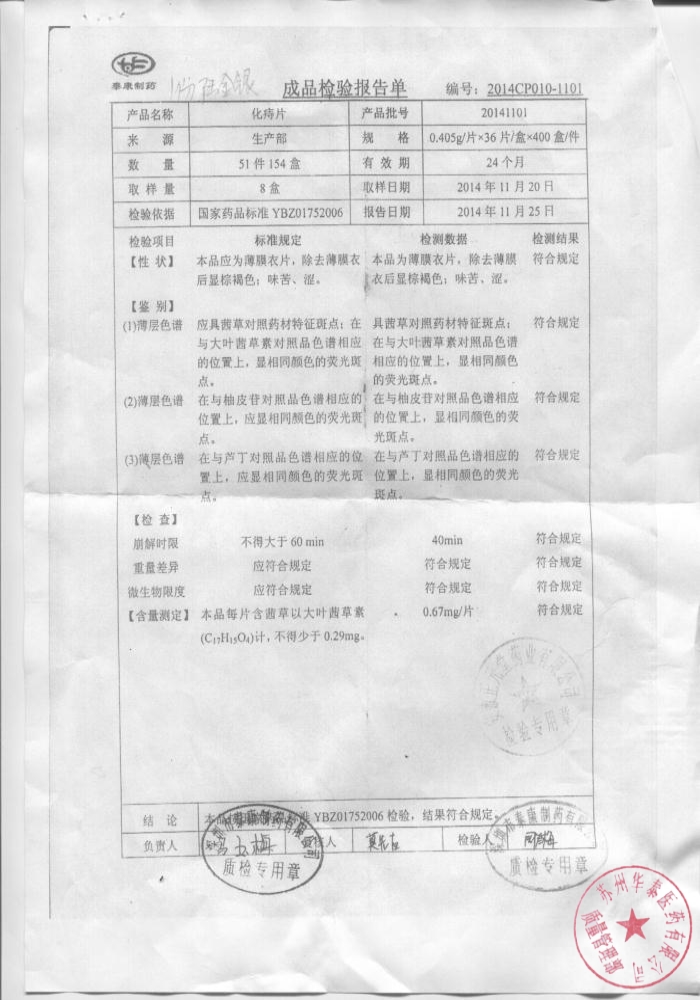 泰康制药
成品检验报告单
编号：2014CP010-1101
产品名称 化痔片 产品批号 20141101
来 源 生产部 规 格 0.405g/片×36片/盒×400盒/件
数 量 51件154盒 有 效 期 24个月
取 样 量 8盒 取样日期 2014年11月20日
检验依据 国家药品标准YBZ01752006 报告日期 2014年11月25日
检验项目 标准规定 检测数据 检测结果
【性 状】 本品应为薄膜衣片，除去薄膜衣 本品为薄膜衣片，除去薄膜 符合规定
后显棕褐色；味苦、涩。 衣后显棕褐色；味苦、涩。
【鉴 别】
(1)薄层色谱 应具茜草对照药材特征斑点；在 具茜草对照药材特征斑点； 符合规定
与大叶茜草素对照品色谱相应 在与大叶茜草素对照品色谱
的位置上，显相同颜色的荧光斑 相应的位置上，显相同颜色
点。 的荧光斑点。
(2)薄层色谱 在与柚皮苷对照品色谱相应的 在与柚皮苷对照品色谱相应 符合规定
位置上，应显相同颜色的荧光斑 的位置上，显相同颜色的荧
点。 光斑点。
(3)薄层色谱 在与芦丁对照品色谱相应的位 在与芦丁对照品色谱相应的 符合规定
置上，应显相同颜色的荧光斑 位置上，显相同颜色的荧光
点。 斑点。
【检 查】
崩解时限 不得大于60 min 40min 符合规定
重量差异 应符合规定 符合规定 符合规定
微生物限度 应符合规定 符合规定 符合规定
【含量测定】 本品每片含茜草以大叶茜草素 0.67mg/片 符合规定
(C₁₇H₁₅O₄)计，不得少于0.29mg。
检验专用章
结 论 YBZ01752006检验，结果符合规定。
负责人 核人 检验人
质检专用章
质检专用章
苏州华泰医药有限公司
质量管理部